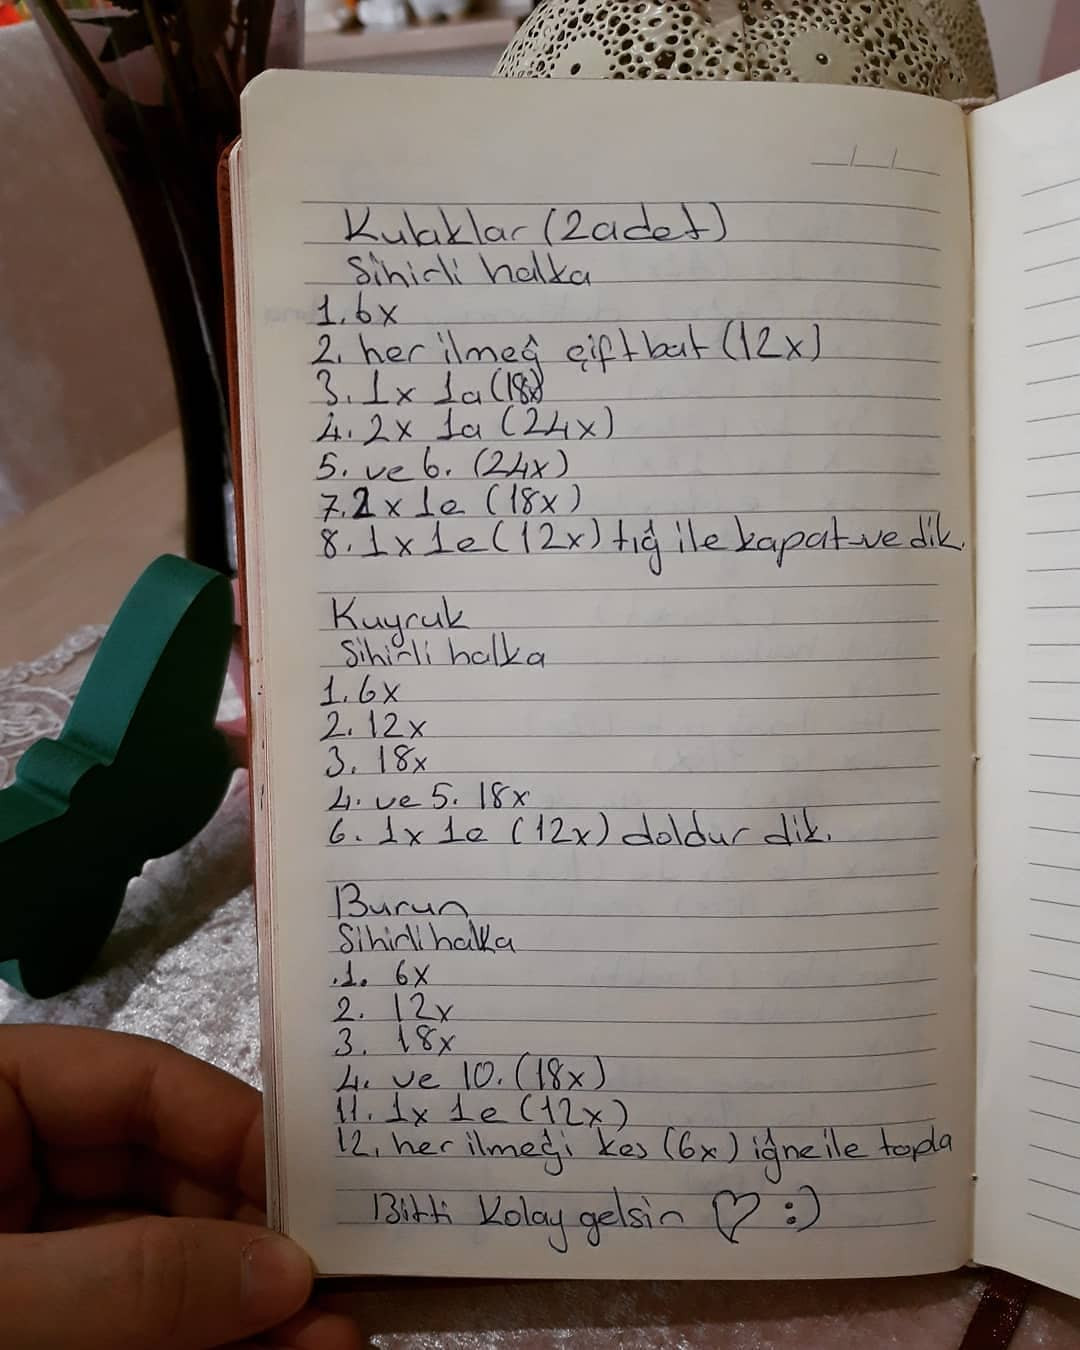 Kulaklar (2 adet)
Sihirli halka
1. 6x
2. her ilmeğ çift bat (12x)
3. 1x 1a (18x)
4. 2x 1a (24x)
5. ve 6. (24x)
7. 2x 1e (18x)
8. 1x 1e (12x) tığ ile kapat ve dik.
Kuyruk
Sihirli halka
1. 6x
2. 12x
3. 18x
4. ve 5. 18x
6. 1x 1e (12x) doldur dik.
Burun
Sihirli halka
1. 6x
2. 12x
3. 18x
4. ve 10. (18x)
11. 1x 1e (12x)
12. her ilmeği kes (6x) iğne ile topla
Bitti Kolay gelsin ♡ :)